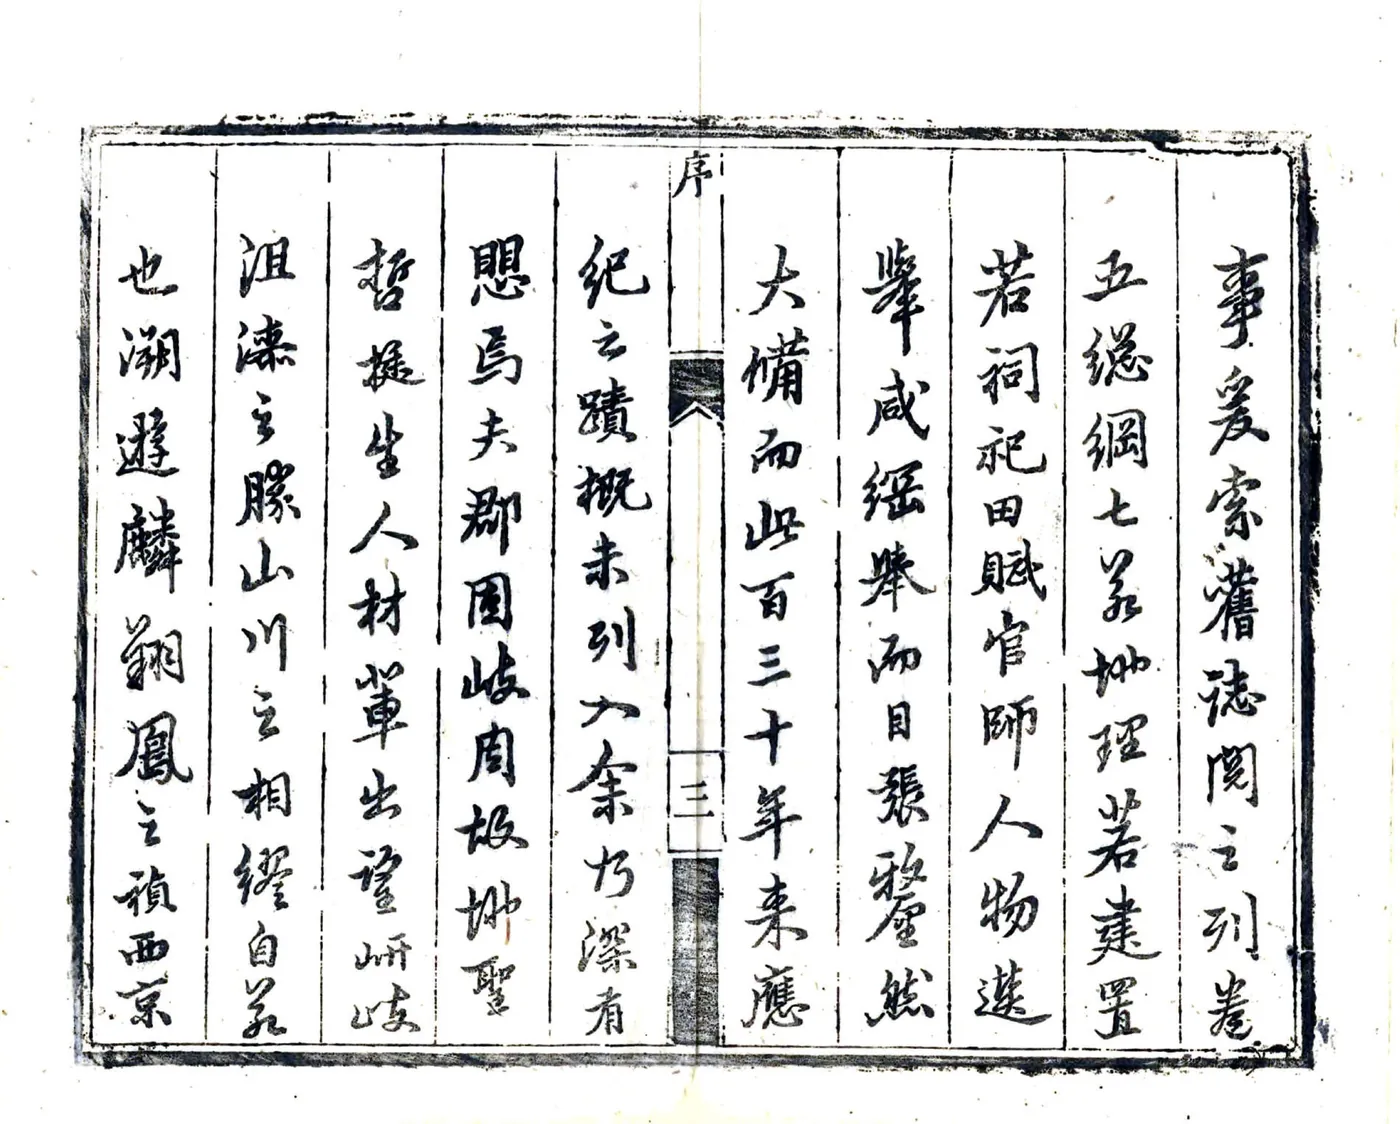 事爰索舊誌閱之列卷
五總綱七若地理若建置
若祠祀田賦官師人物選
舉咸綱舉而目張釐然
大備而此百三十年來應
序
三
紀之蹟概未列入余乃深有
愳焉夫郡固岐周故地聖
哲挺生人材輩出望岍岐
沮漆之勝山川之相繆自若
也溯遊麟翔鳳之禎西京